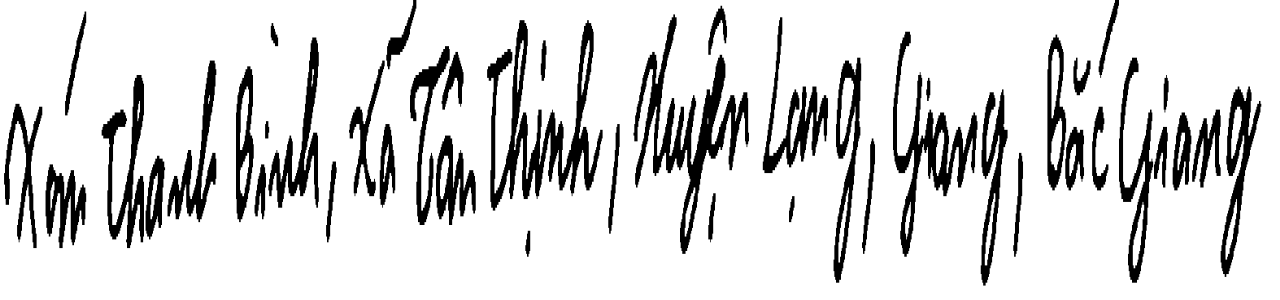 Xóm Thanh Bình, Xã Tân Thịnh, Huyện Lạng, Giang, Bắc Giang